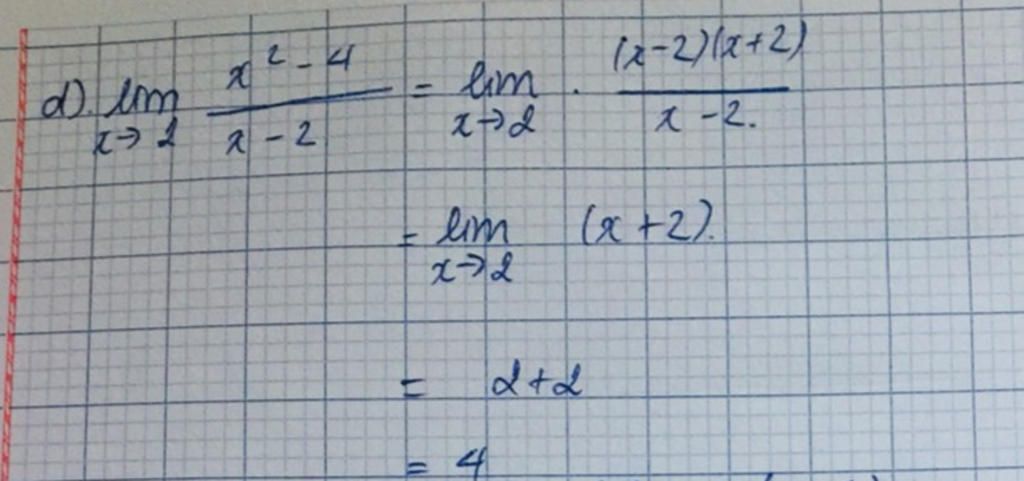 d). lim x→2 (x² - 4)/(x - 2) = lim x→2 . (x-2)(x+2)/(x - 2).
= lim x→2 (x+2).
= 2+2
= 4